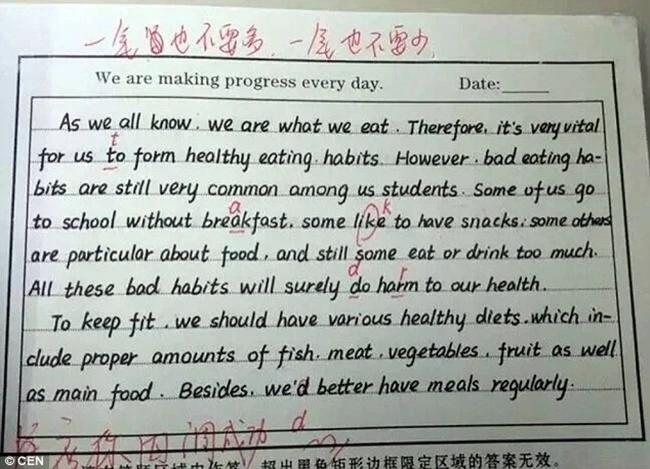 一尾 也不要多、一尾也不要少
We are making progress every day. Date:
As we all know, we are what we eat. Therefore, it's very vital
t
for us to form healthy eating habits. However, bad eating ha-
bits are still very common among us students. Some of us go
a k
to school without breakfast, some like to have snacks; some others
are particular about food, and still some eat or drink too much.
d r
All these bad habits will surely do harm to our health.
To keep fit, we should have various healthy diets, which in-
clude proper amounts of fish, meat, vegetables, fruit as well
as main food. Besides, we'd better have meals regularly.
成功 d
©CEN
超出黑色矩形边框限定区域的答案无效。